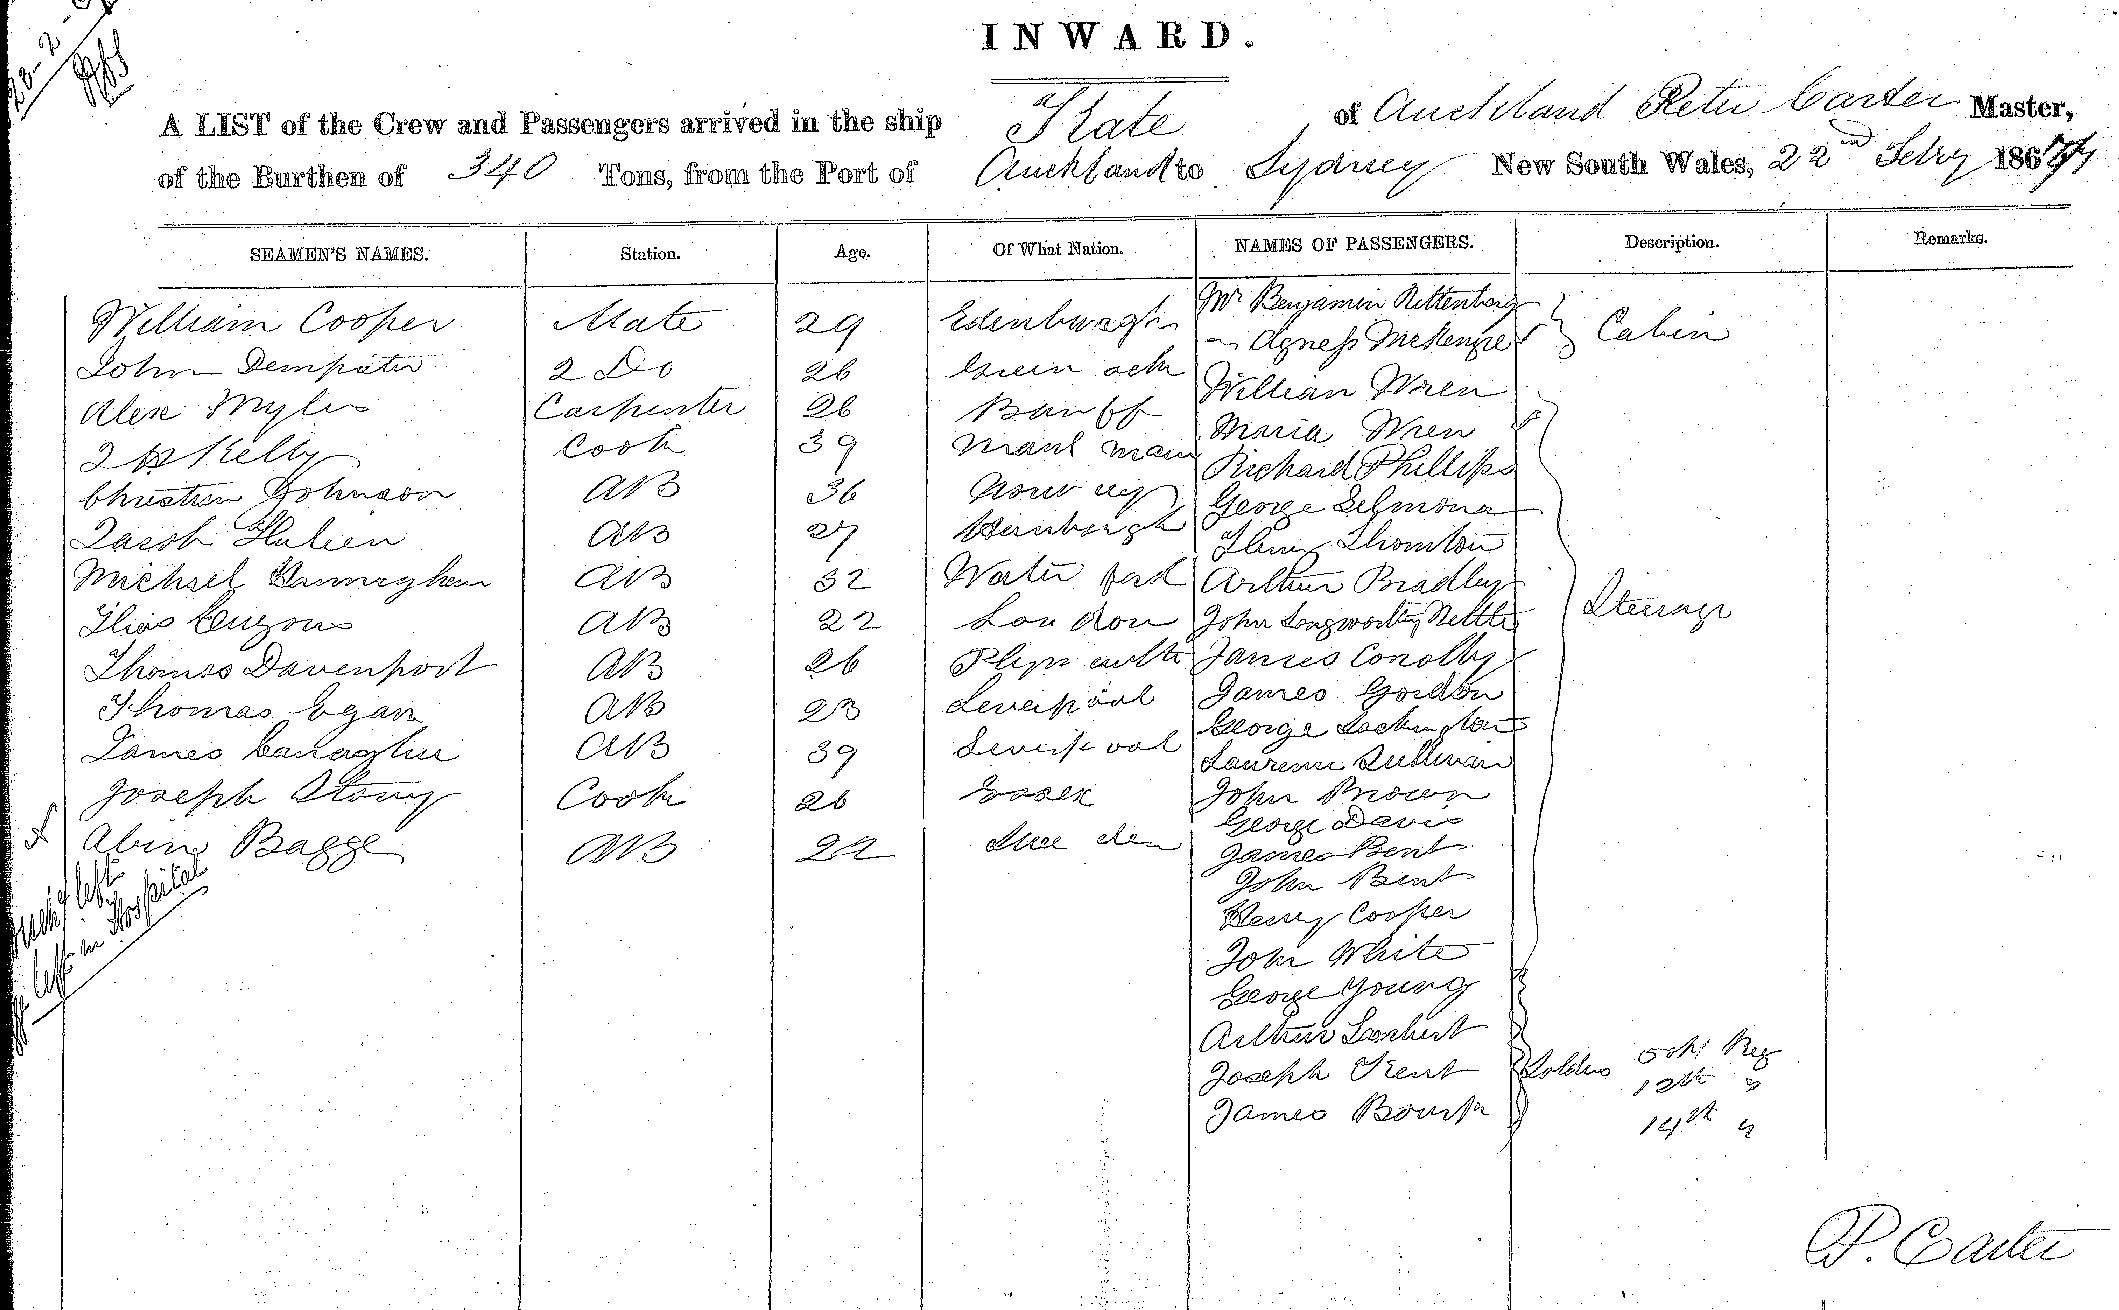 INWARD.
A LIST of the Crew and Passengers arrived in the ship Kate of Auckland Peter Carter Master,
of the Burthen of 340 Tons, from the Port of Auckland to Sydney New South Wales, 22nd 186
SEAMEN'S NAMES. Station. Age. Of What Nation. NAMES OF PASSENGERS. Description. Remarks.
William Cooper Mate 29 Edenburgh Mr Benjamin Rettenberg
Agness McKenzie Cabin
John Dempster 2 Do 26
William Wren
Alex Myles Carpenter 26 Banff
Maria Wren
Kelly Cook 39 man
Richard Phillips
Christian Johnson AB 36
George
Jacob AB 27
Thornton
Michael AB 32 Water
Arthur Bradley
AB 22 London John Longworthy
Steerage
Thomas Davenport AB 26 James Conolly
Thomas Egan AB 23 Liverpool James Gordon
George
James AB 39 Liverpool
Laurence Sullivan
Joseph Cook 26 Essex John Brown
George Davis
Bagge AB 22 Swe den
James Bent
John Bent
left
left in Hospital
Henry Cooper
John White
George Young
Arthur
Reg
Joseph Trent 12th "
James 14th "
P. Carter